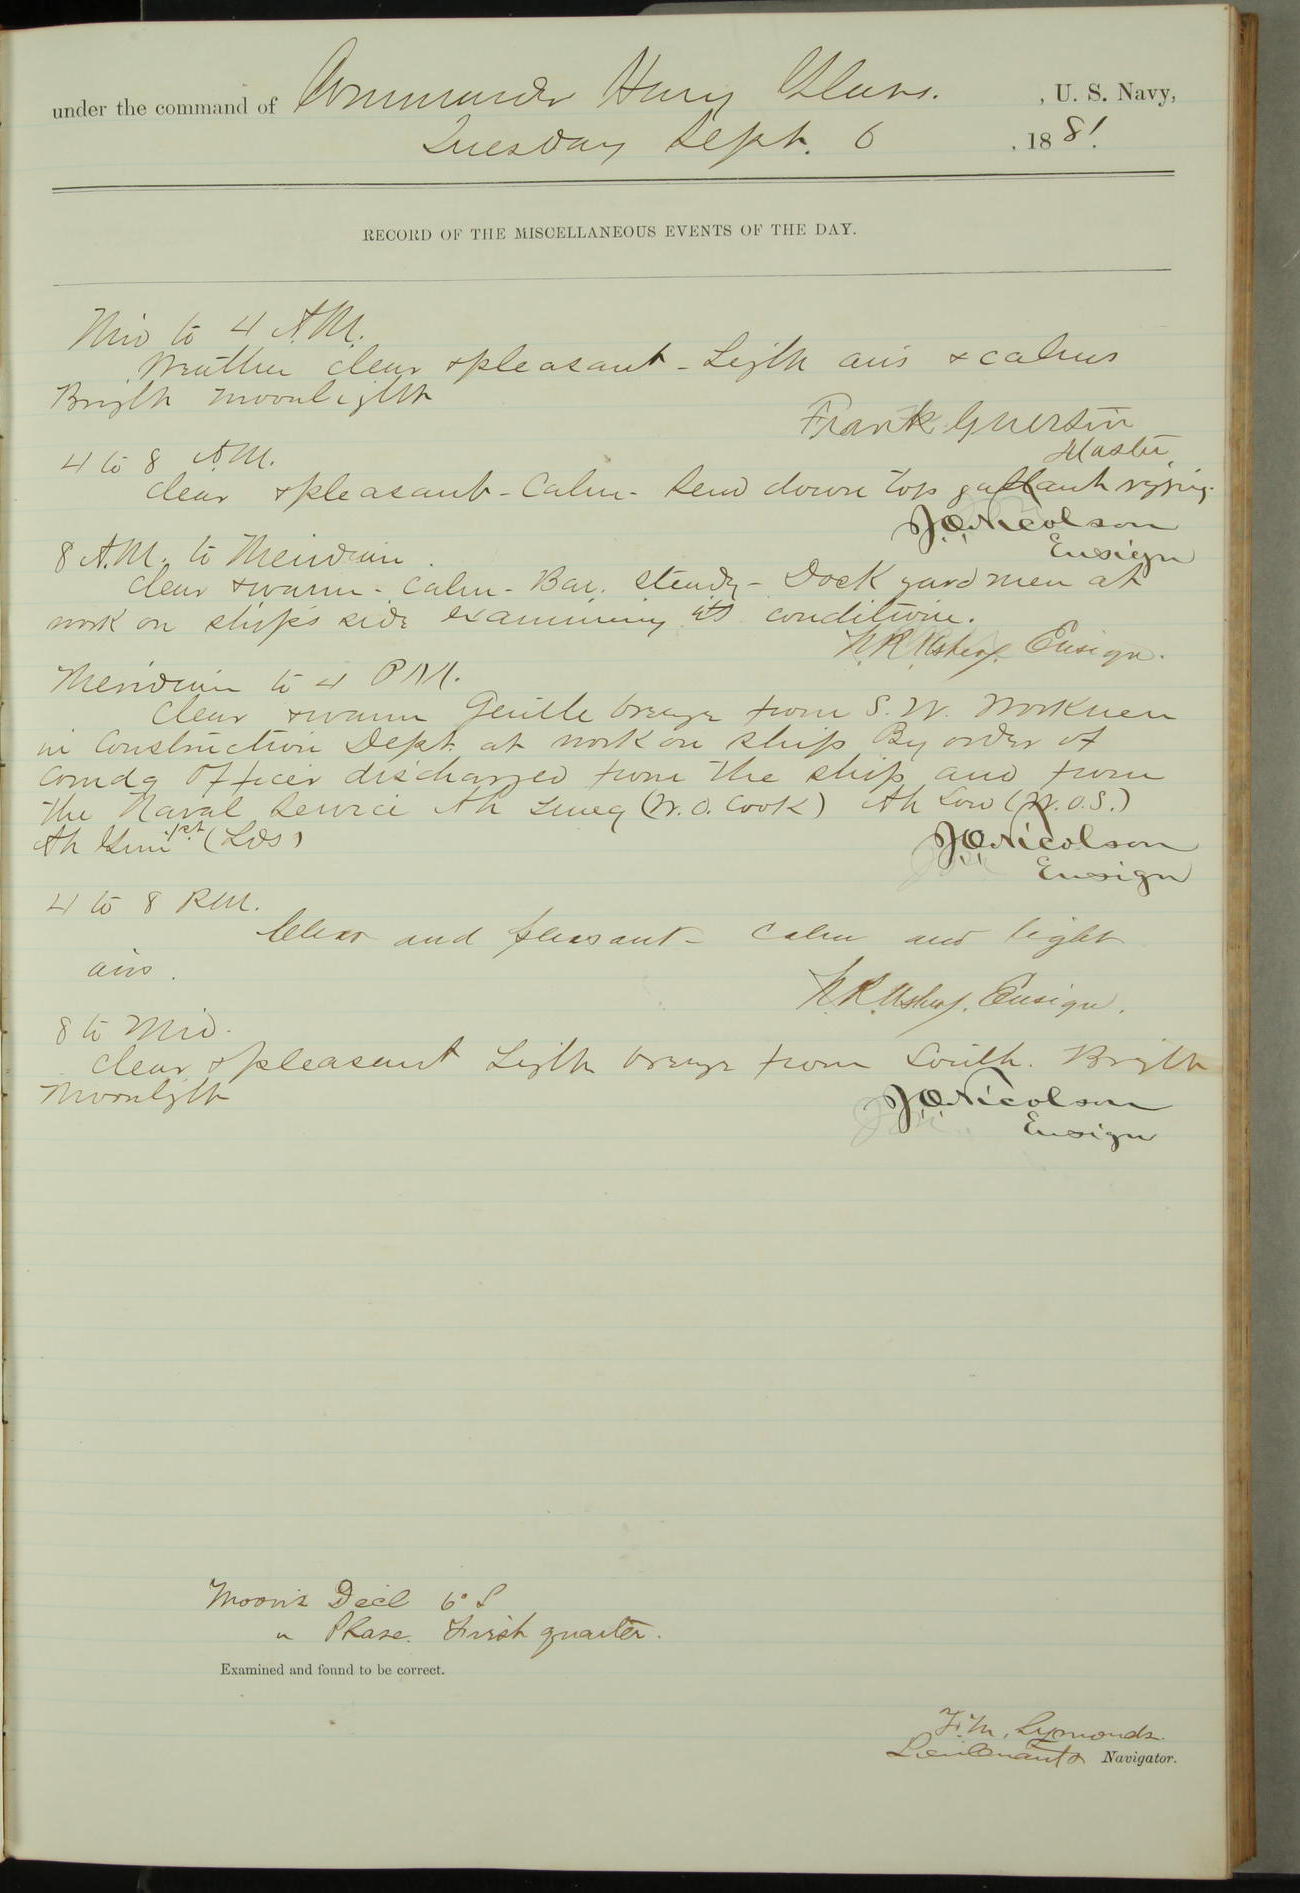 under the command of Commander Henry Glass. , U. S. Navy,
Tuesday Sept. 6 , 1881.
RECORD OF THE MISCELLANEOUS EVENTS OF THE DAY.
Mid to 4 A.M.
Weather clear & pleasant - Light airs & calms
Bright moonlight
Frank Guertin
Master
4 to 8 A.M.
Clear & pleasant - Calm - Send down top gallant rigging.
J.O. Nicolson
Ensign
8 A.M. to Meridian
Clear & warm - Calm - Bar. steady - Dock yard men at
work on ship's side examining its condition.
N.R. Usher, Ensign.
Meridian to 4 P.M.
Clear & warm Gentle breeze from S.W. Workmen
in Construction Dept. at work on ship By order of
Comdg Officer discharged from the ship and from
the Naval Service Ah (W.O. Cook) Ah Low (W.O.S.)
Ah 1st (Lds)
J.O. Nicolson
Ensign
4 to 8 P.M.
Clear and pleasant - Calm and light
airs.
N.R. Usher, Ensign.
8 to Mid.
Clear & pleasant Light breeze from South. Bright
Moonlight
J.O. Nicolson
Ensign
Moon's Decl 6° S
" Phase. First quarter.
Examined and found to be correct.
F.M. Symonds.
Lieutenant & Navigator.